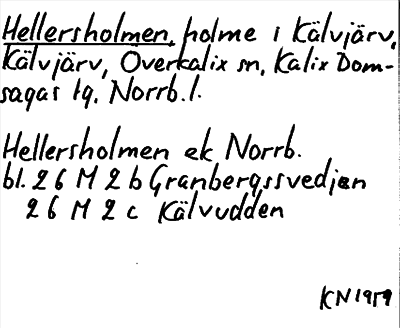 Hellersholmen, holme i Kälvjärv,
Kälvjärv, Överkalix sn, Kalix Dom-
sagas tg, Norrb.l.
Hellersholmen ek Norrb.
bl. 26 M 2 b Granbergssvedjan
26 M 2 c Kälvudden
KN 1959